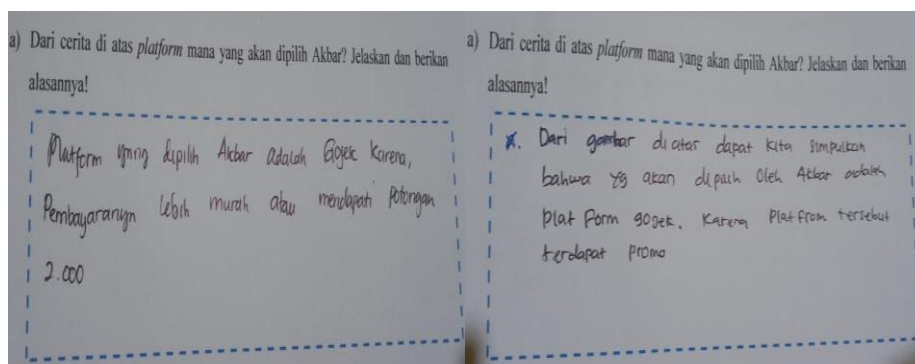 a) Dari cerita di atas platform mana yang akan dipilih Akbar? Jelaskan dan berikan
alasannya!
Platform yang dipilih Akbar adalah Gojek Karena,
Pembayarannya lebih murah atau mendapati Potongan
2.000
a) Dari cerita di atas platform mana yang akan dipilih Akbar? Jelaskan dan berikan
alasannya!
Dari gambar diatas dapat kita simpulkan
bahwa yg akan dipilih Oleh Akbar adalah
Plat Form gojek. Karena Plat from tersebut
terdapat Promo